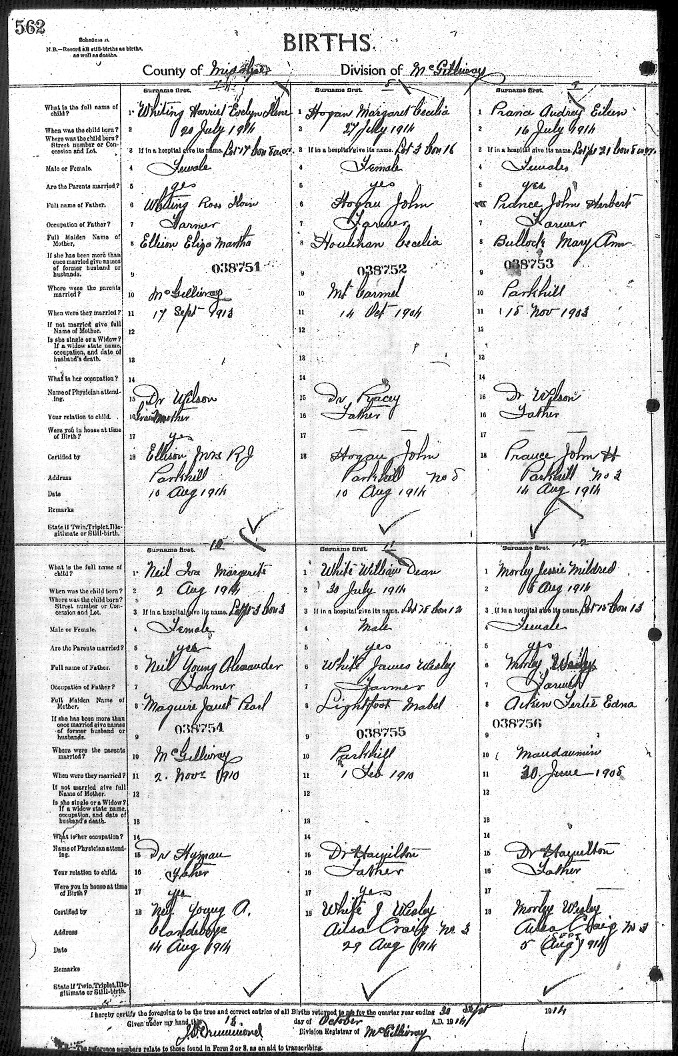 562
Schedule A.
N.B.—Record all still-births as births, as well as deaths.
BIRTHS.
County of Middlesex Division of McGillivray
Surname first. Surname first. Surname first.
What is the full name of child? 1 Whiting Harriet Evelyn Irene 1 Hogan Margaret Cecelia 1 Prance Audrey Eileen
When was the child born? 2 20 July 1914 2 27 July 1914 2 16 July 1914
Where was the child born? Street number or Concession and Lot. 3 If in a hospital give its name. Lot 17 Con 8 3 If in a hospital give its name. Lot 3 Con 16 3 If in a hospital give its name. Lot 21 Con 8
Male or Female. 4 Female 4 Female 4 Female
Are the Parents married? 5 yes 5 yes 5 yes
Full name of Father. 6 Whiting Ross 6 Hogan John 6 Prance John Herbert
Occupation of Father? 7 Farmer 7 Farmer 7 Farmer
Full Maiden Name of Mother. 8 Ellison Eliza Martha 8 Houlihan Cecelia 8 Bullock Mary Ann
If she has been more than once married give names of former husband or husbands. 9 038751 9 038752 9 038753
Where were the parents married? 10 McGillivray 10 Mt Carmel 10 Parkhill
When were they married? 11 17 Sept 1913 11 14 Oct 1904 11 15 Nov 1903
If not married give full Name of Mother. 12 12 12
Is she single or a Widow? If a widow state name, occupation, and date of husband's death. 13 13 13
What is her occupation? 14 14 14
Name of Physician attending. 15 Dr Wilson 15 Dr Racey 15 Dr Wilson
Your relation to child. 16 Grandmother 16 Father 16 Father
Were you in house at time of Birth? 17 yes 17 17
Certified by 18 Ellison Mrs R J 18 Hogan John 18 Prance John H
Address Parkhill Parkhill No 5 Parkhill No 2
Date 10 Aug 1914 10 Aug 1914 14 Aug 1914
Remarks
State if Twin, Triplet, Illegitimate or Still-birth.
10 11 12
Surname first. Surname first. Surname first.
What is the full name of child? 1 Neil Iva Margarete 1 White William Dean 1 Morley Jessie Mildred
When was the child born? 2 2 Aug 1914 2 30 July 1914 2 5 Aug 1914
Where was the child born? Street number or Concession and Lot. 3 If in a hospital give its name. Con 3 3 If in a hospital give its name. Con 12 3 If in a hospital give its name. Lot 15 Con 13
Male or Female. 4 Female 4 Male 4 Female
Are the Parents married? 5 yes 5 yes 5 yes
Full name of Father. 6 Neil Young Alexander 6 White James Wesley 6 Morley Wesley
Occupation of Father? 7 Farmer 7 Farmer 7 Farmer
Full Maiden Name of Mother. 8 Maguire Janet Pearl 8 Lightfoot Mabel 8 Aitken Edna
If she has been more than once married give names of former husband or husbands. 9 038754 9 038755 9 038756
Where were the parents married? 10 McGillivray 10 Parkhill 10 Mandaumin
When were they married? 11 2. Nov 1910 11 1 Feb 1910 11 30 June 1908
If not married give full Name of Mother. 12 12 12
Is she single or a Widow? If a widow state name, occupation, and date of husband's death. 13 13 13
What is her occupation? 14 14 14
Name of Physician attending. 15 Dr Hyman 15 Dr Hamilton 15 Dr Hamilton
Your relation to child. 16 Father 16 Father 16 Father
Were you in house at time of Birth? 17 yes 17 yes 17
Certified by 18 Neil Young A. 18 White J Wesley 18 Morley Wesley
Address Clandeboye Ailsa Craig No 3 Ailsa Craig No 3
Date 14 Aug 1914 29 Aug 1914 5 (Aug) Sept 1914
Remarks
State if Twin, Triplet, Illegitimate or Still-birth.
I hereby certify the foregoing to be the true and correct entries of all Births returned to me for the quarter year ending 30 Sept 1914
Given under my hand, this 12 day of October A.D. 1914
J.D. Drummond Division Registrar of McGillivray
N.B.—The reference numbers relate to those found in Form 2 or 8, as an aid to transcribing.